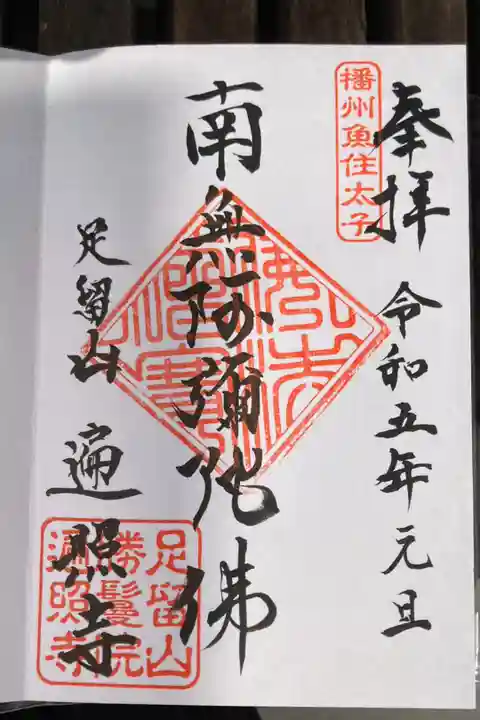 奉拝
令和五年元旦
播州魚住太子
南無阿弥陀佛
足留山
遍照寺
足留山
勝鬘院
遍照寺